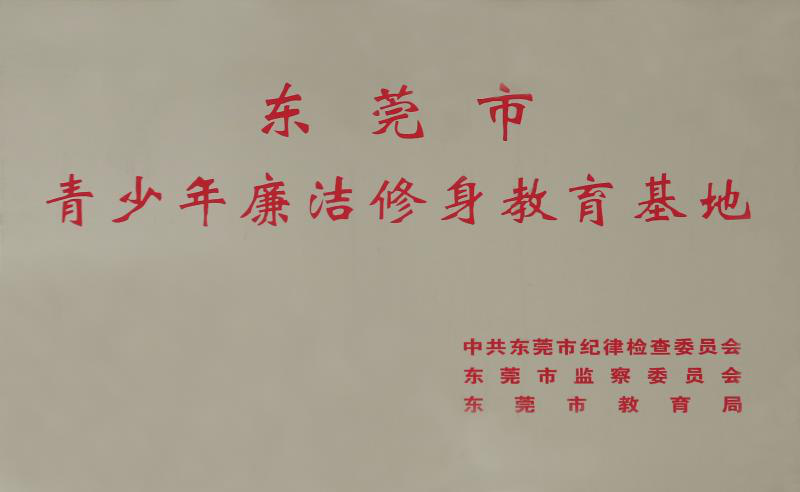 东莞市
青少年廉洁修身教育基地
中共东莞市纪律检查委员会
东莞市监察委员会
东莞市教育局